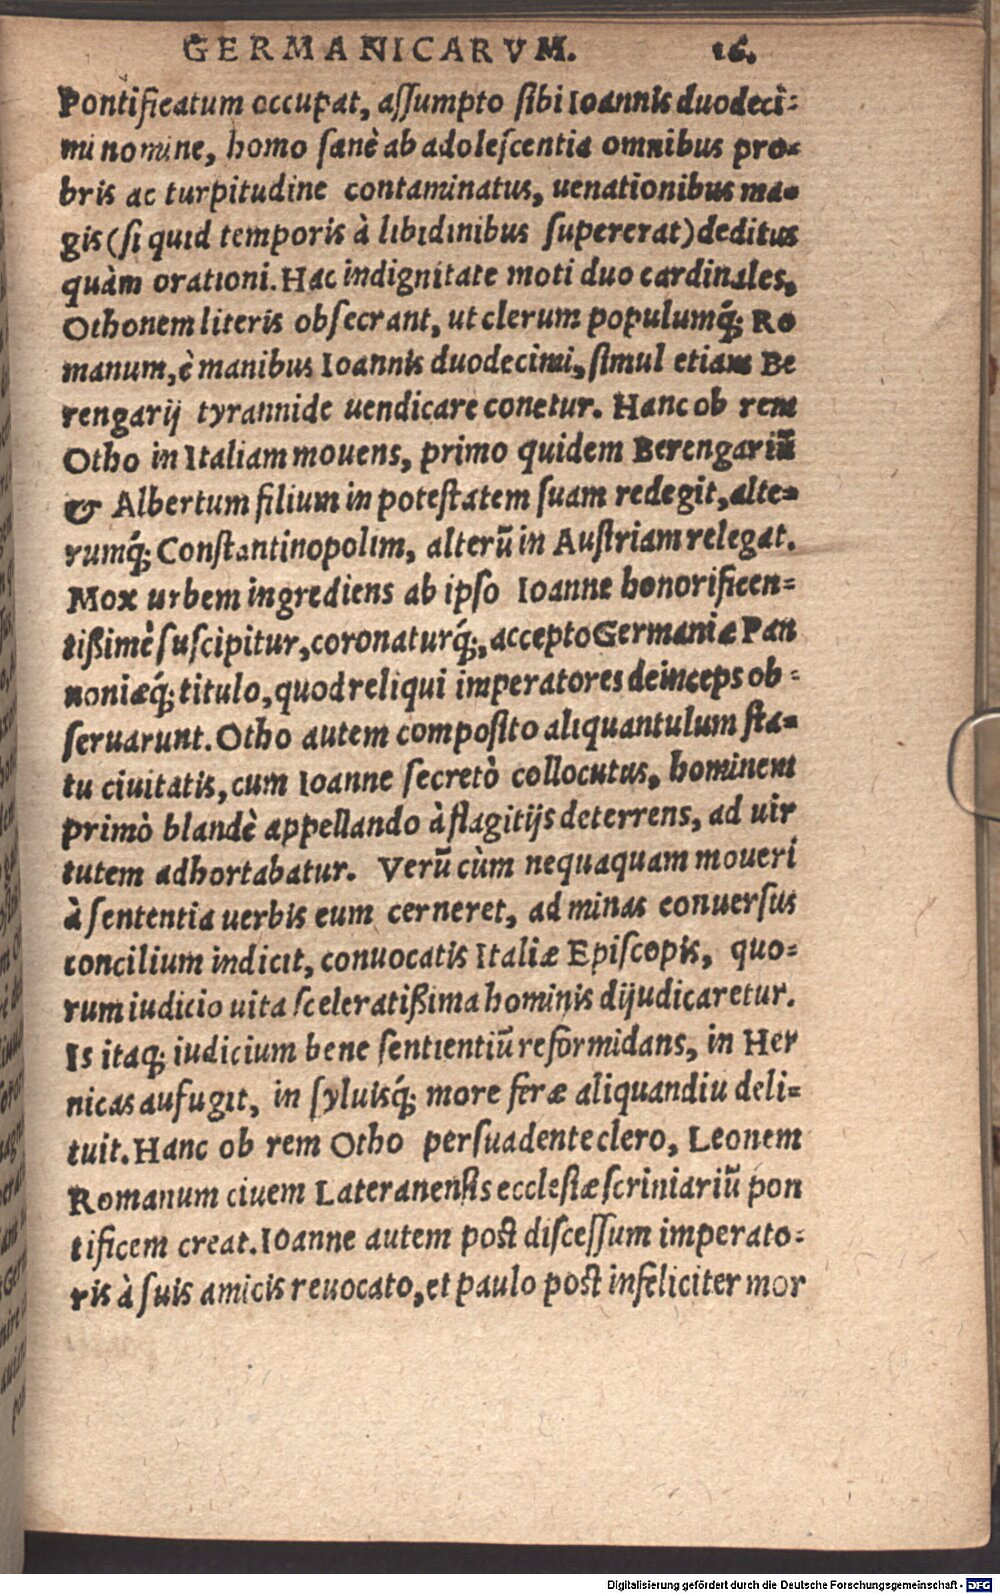 GERMANICARVM. 16.
Pontificatum occupat, aſſumpto ſibi Ioannis duodeci-
mi nomine, homo ſanè ab adoleſcentia omnibus pro-
bris ac turpitudine contaminatus, uenationibus ma-
gis (ſi quid temporis à libidinibus ſupererat) deditus
quàm orationi. Hac indignitate moti duo cardinales,
Othonem literis obſecrant, ut clerum populumq́; Ro
manum, è manibus Ioannis duodecimi, ſimul etiam Be
rengarij tyrannide uendicare conetur. Hanc ob rem
Otho in Italiam mouens, primo quidem Berengariũ
& Albertum filium in poteſtatem ſuam redegit, alte-
rumq́; Conſtantinopolim, alterũ in Auſtriam relegat.
Mox urbem ingrediens ab ipſo Ioanne honorificen-
tißimè ſuſcipitur, coronaturq́;, accepto Germaniæ Pan
noniæq́; titulo, quod reliqui imperatores deinceps ob-
ſeruarunt. Otho autem compoſito aliquantulum ſta-
tu ciuitatis, cum Ioanne ſecretò collocutus, hominem
primò blandè appellando à flagitijs deterrens, ad uir
tutem adhortabatur. Verũ cùm nequaquam moueri
à ſententia uerbis eum cerneret, ad minas conuerſus
concilium indicit, conuocatis Italiæ Epiſcopis, quo-
rum iudicio uita ſceleratißima hominis dijudicaretur.
Is itaq; iudicium bene ſentientiũ reformidans, in Her
nicas aufugit, in ſyluisq́; more feræ aliquandiu deli-
tuit. Hanc ob rem Otho perſuadente clero, Leonem
Romanum ciuem Lateranenſis eccleſiæ ſcriniariũ pon
tificem creat. Ioanne autem poſt diſceſſum imperato-
ris à ſuis amicis reuocato, et paulo poſt infeliciter mor
Digitalisierung gefördert durch die Deutsche Forschungsgemeinschaft - DFG